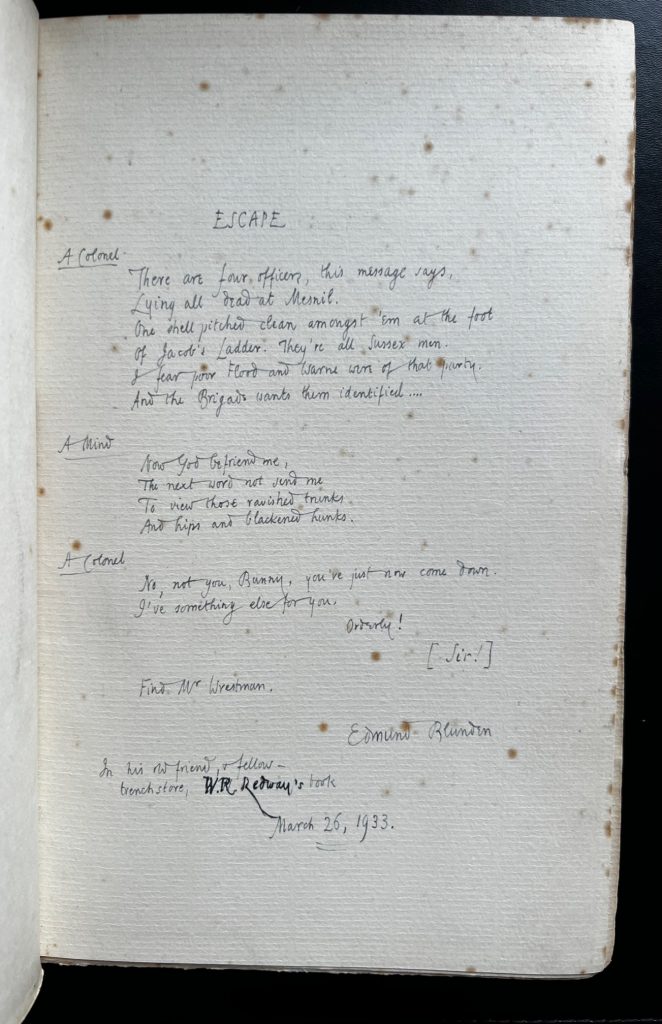 ESCAPE
A Colonel.
There are four officers, this message says,
Lying all dead at Mesnil.
One shell pitched clean amongst 'em at the foot
Of Jacob's Ladder. They're all Sussex men.
I fear poor Flood and Warne were of that party.
And the Brigade wants them identified....
A Mind
Now God befriend me,
The next word not send me
To view those ravished trunks
And hips and blackened hunks.
A Colonel
No, not you, Bunny, you've just now come down.
I've something else for you.
Orderly!
[Sir!]
Find Mr Wrestman.
Edmund Blunden
In his old friend, & fellow-
trenchstore, W.R. Redway's book
March 26, 1933.